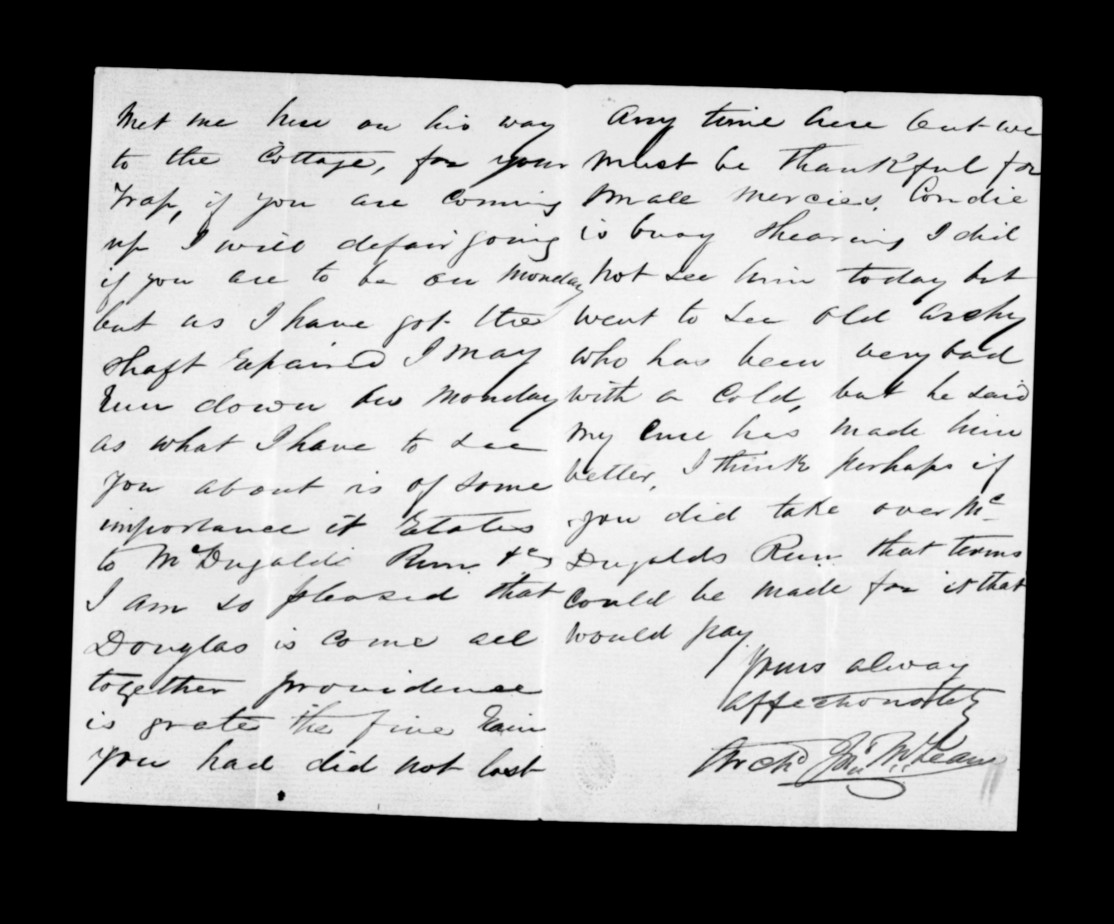 Met me here on his way
to the Cottage, for your
Trap, if you are coming
up I will defair going
if you are to be on Monday
but as I have got the
shaft repaired I may
run down on Monday
as what I have to see
you about is of some
importance it relates
to McDugalds Run &c
I am so pleased that
Douglas is come all
together providence
is grate the fine rain
you had did not last
Any time here but we
must be thankful for
small mercies, Condie
is busy shearing I did
not see him today but
went to see old Archy
who has been very bad
with a cold, but he said
my cure has made him
better, I think perhaps if
you did take over Mc
Dugalds Run that terms
could be made for it that
would pay
Yours alway
affectionately
Archd Jno McLean